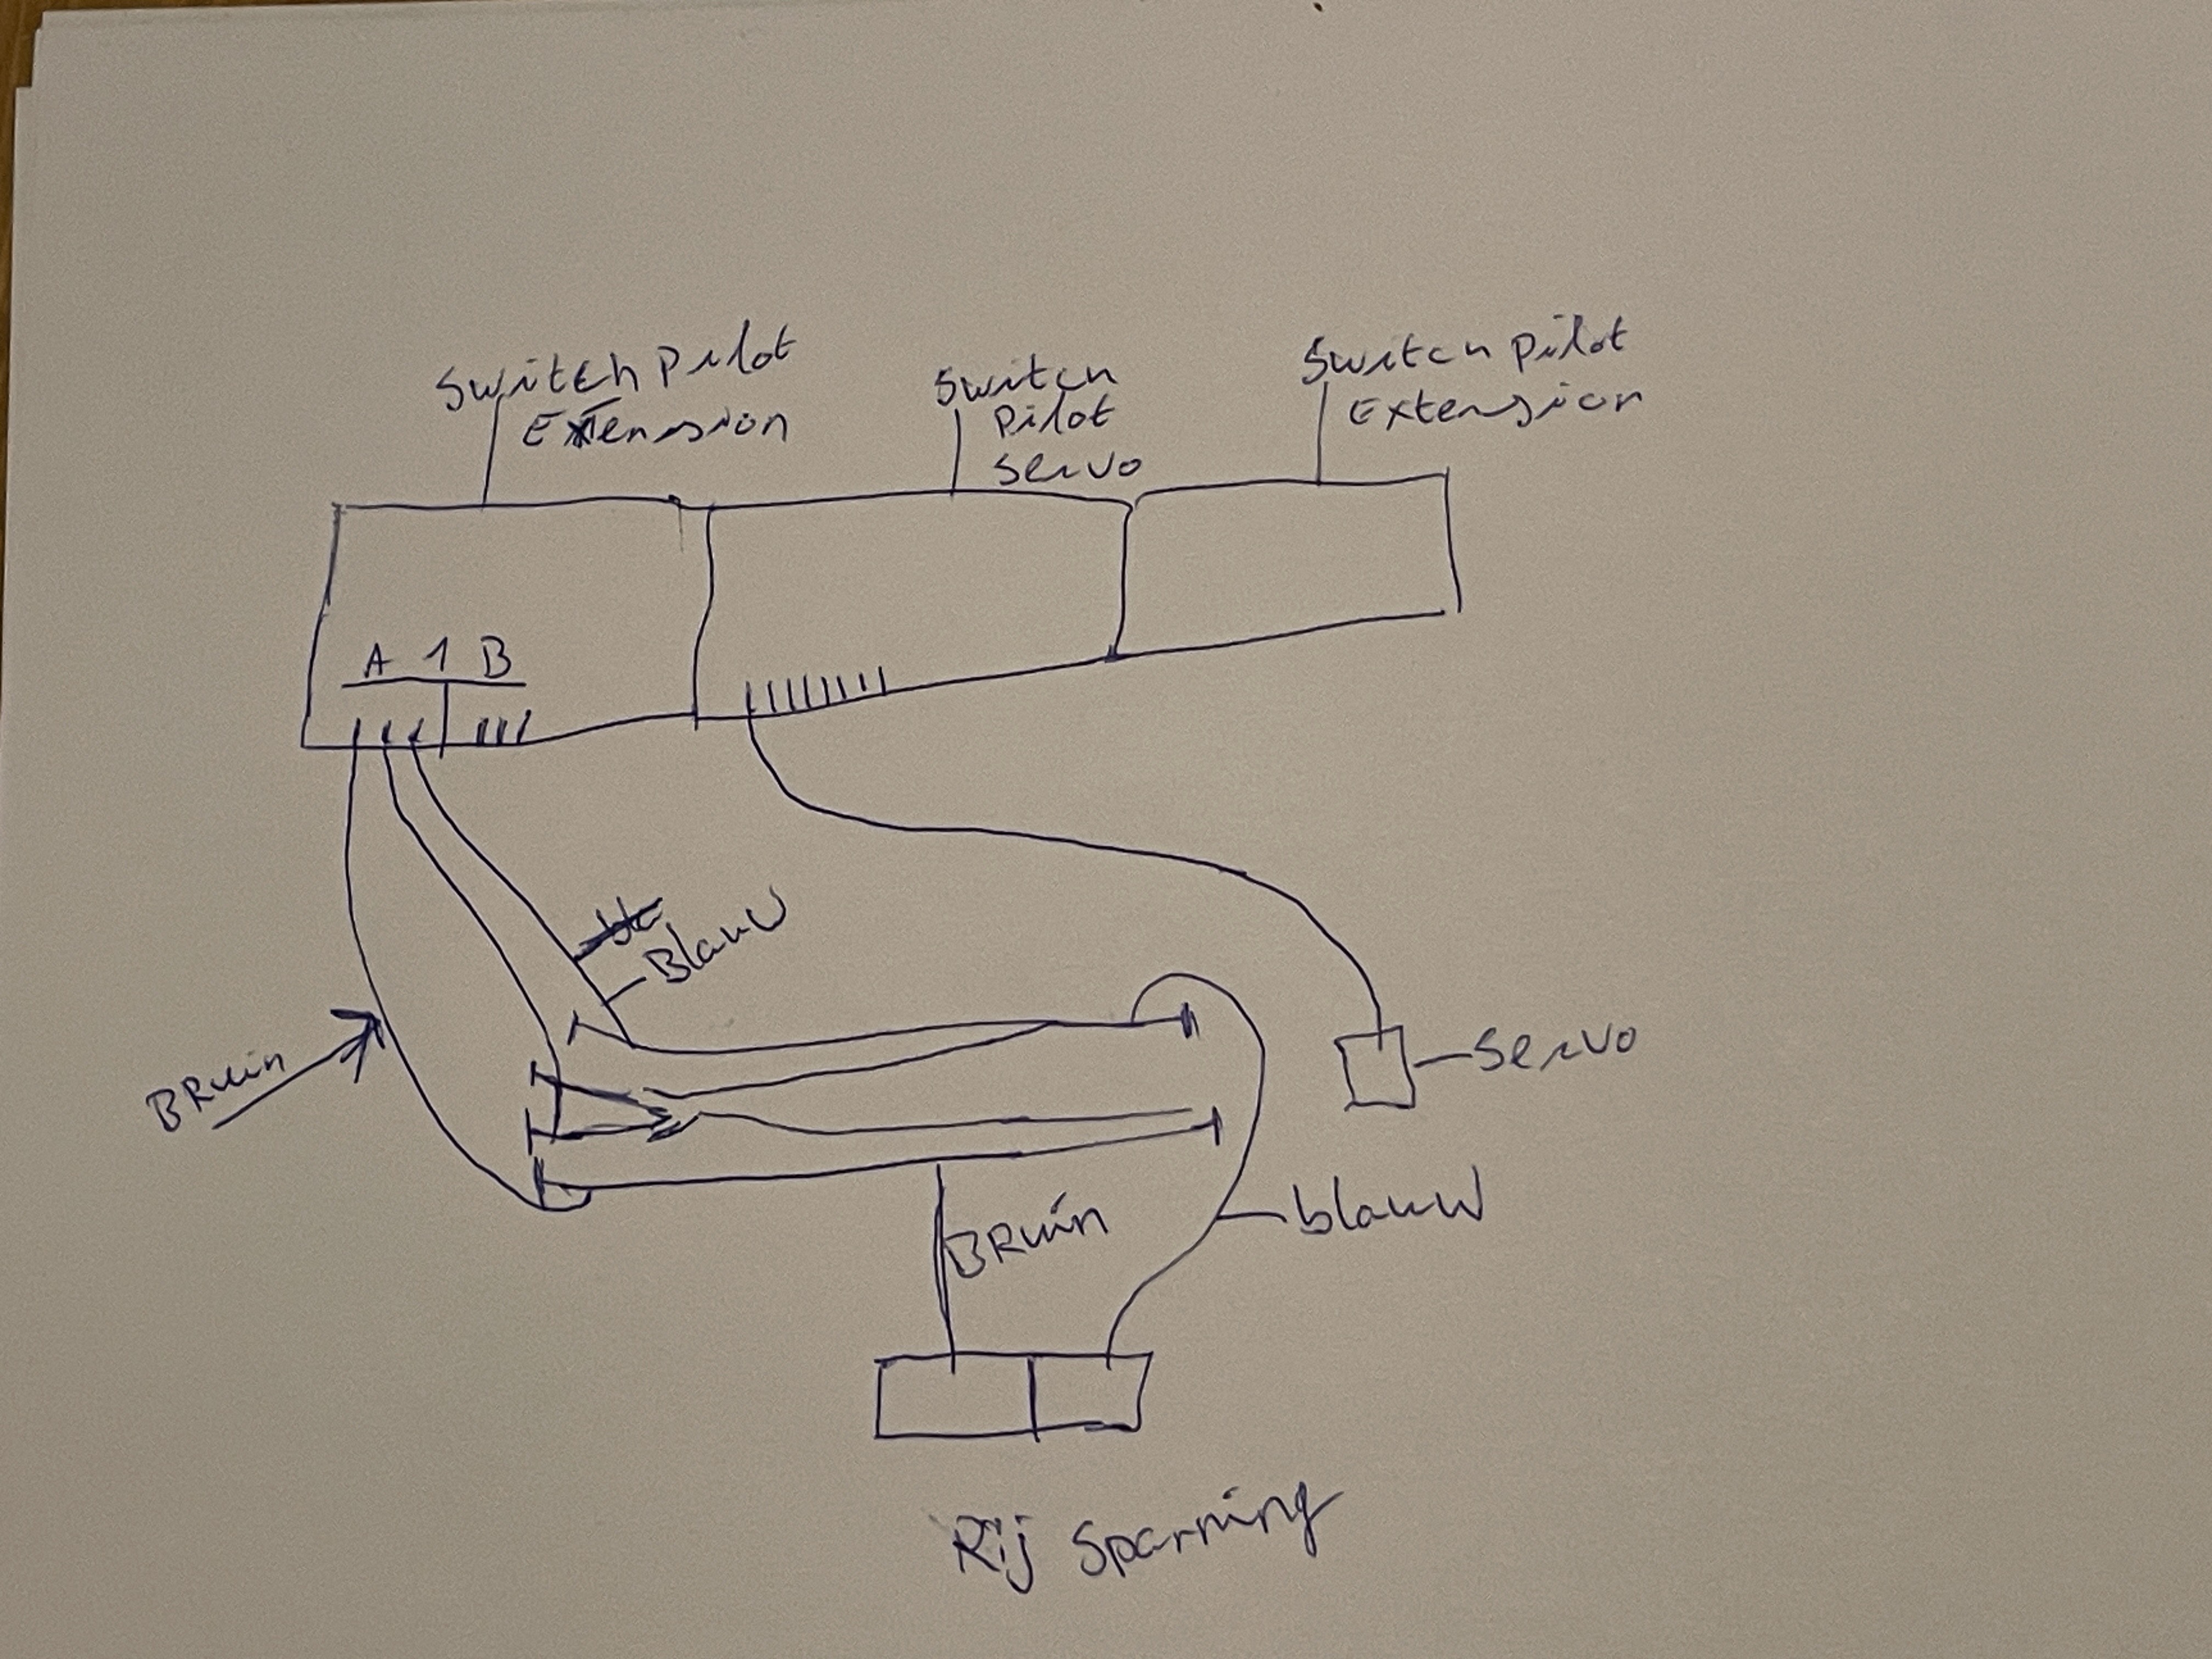 Switch Pilot
Extension
Switch
Pilot
Servo
Switch pilot
Extension
A 1 B
Blauw
BRuin
Servo
BRuin
blauw
Rij Spanning